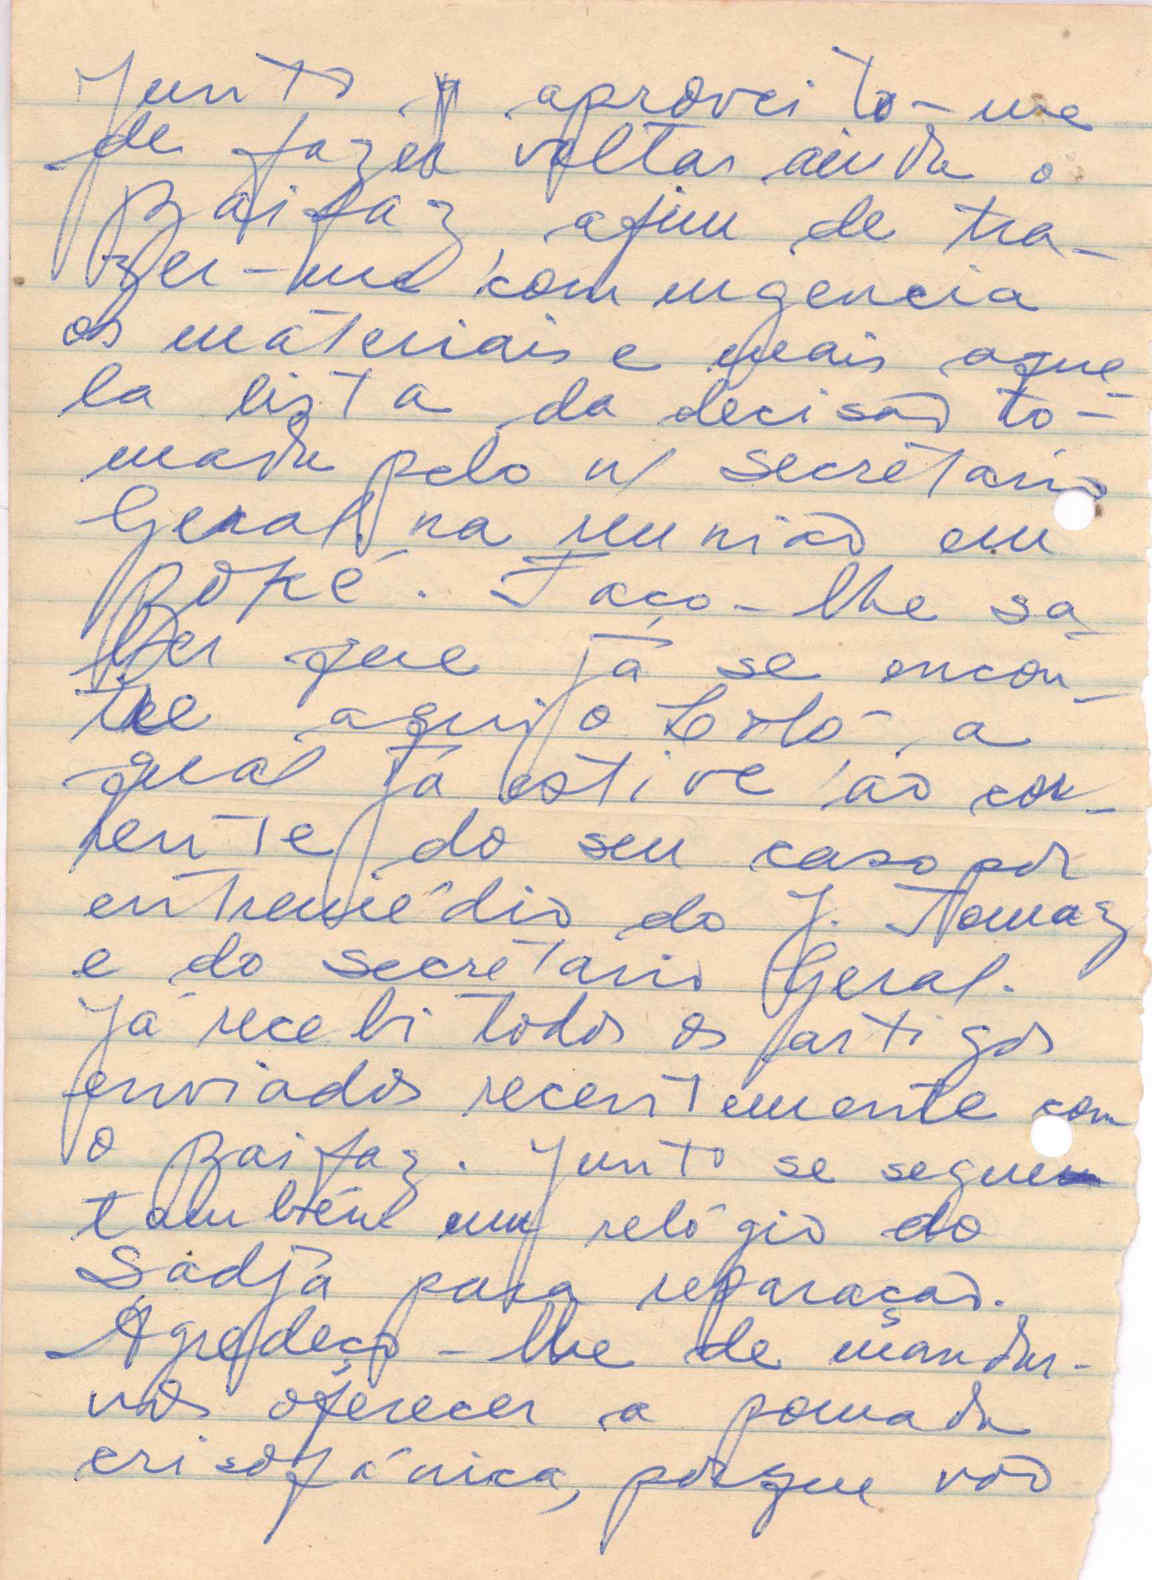 Junto aproveito-me
de fazer voltar ainda o
Baifaz afim de tra-
zer-me com urgencia
os máteriais e mais aque-
la lista da decisão to-
mada pelo n/ secrétario
Geral na reunião em
Boké. Faço-lhe sa-
ber que já se encon-
tre aqui o Lóló a
qual já estive ao cor-
rente do seu caso por
entremédio do J. Tomaz
e do secrétario Geral.
Já recebi todos os artigos
enviados recentemente com
o Baifaz. Junto se segue
também um relógio do
Sadjá para reparação.
Agredeço-lhe de mandar-
nos oferecer a pomada
crisofánica, porque não